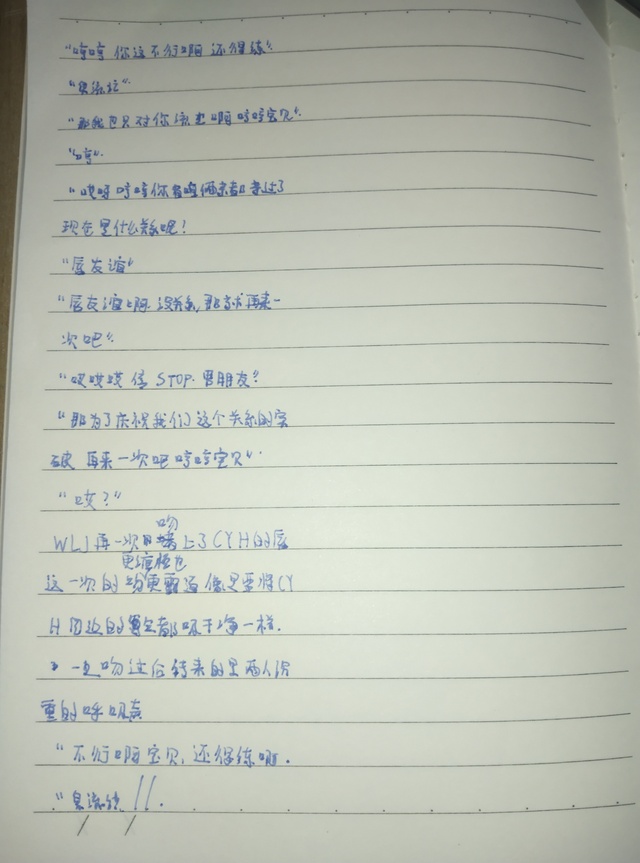 “哼哼 你这不行啊 还得练”.
“臭流氓”.
“那我也只对你流氓啊 哼哼宝贝”.
“哼”.
“哎呀 哼哼你看咱俩亲都亲过了
现在是什么关系呢！
“唇友谊”
“唇友谊啊 没关系, 那就再来一
次吧”.
“哎哎哎 停 STOP. 男朋友？
“那为了庆祝我们这个关系的突
破 再来一次吧 哼哼宝贝”.
“哎？”
WLJ再一次吻上了CYH的唇
这一次的吻更缠绵也更霸道 像是要将CY
H 周边的空气都吸干净一样.
一吻过后 传来的是两人沉
重的呼吸声
“不行啊宝贝, 还得练啊.
“臭流氓！！.